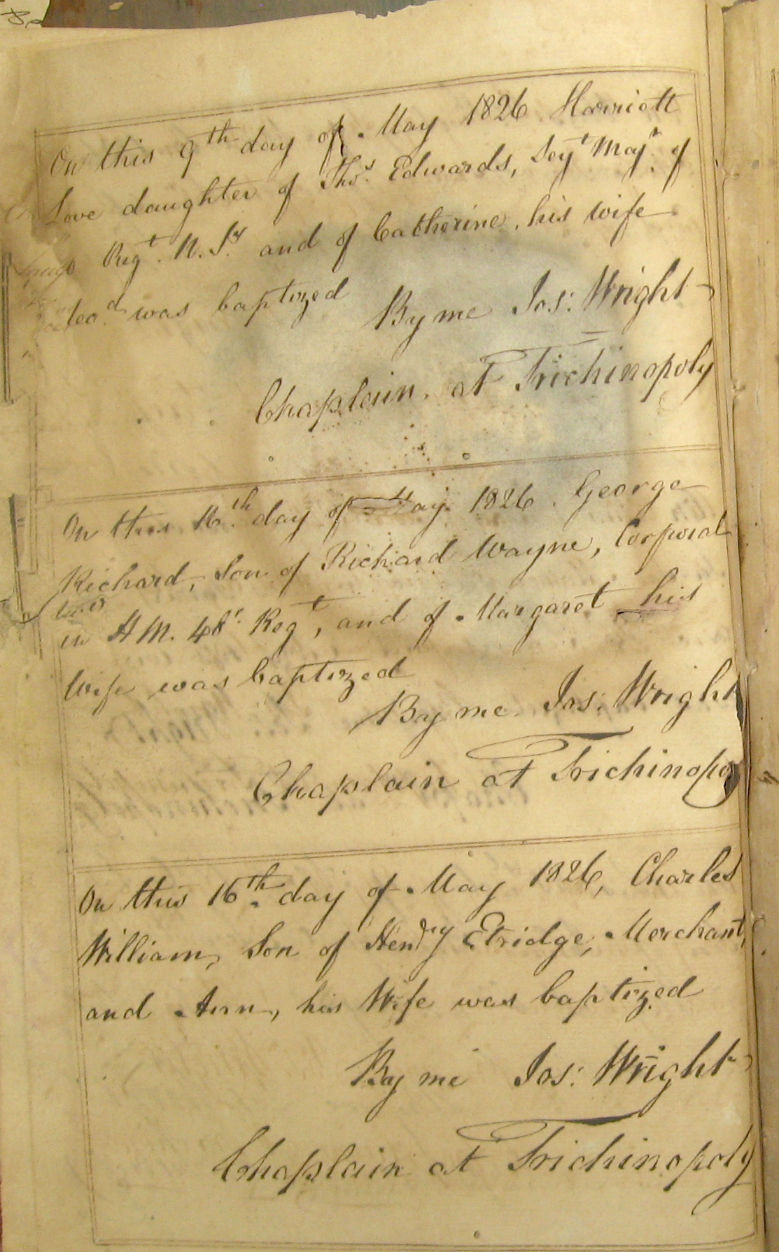 On this 9th day of May 1826 Harriott
Love daughter of Thos. Edwards, Serjt Majr. of
Regt. N. Iy. and of Catherine, his wife
was baptized
By me Jos: Wright
Chaplain at Trichinopoly
On this 16th day of May 1826 George
Richard, Son of Richard Wayne, Corporal
in H M. 48t. Regt, and of Margaret his
Wife was baptized
By me Jos: Wright
Chaplain at Trichinopoly
On this 16th day of May 1826, Charles
William, Son of Henry Etridge, Merchant,
and Ann, his Wife was baptized
By me Jos: Wright
Chaplain at Trichinopoly